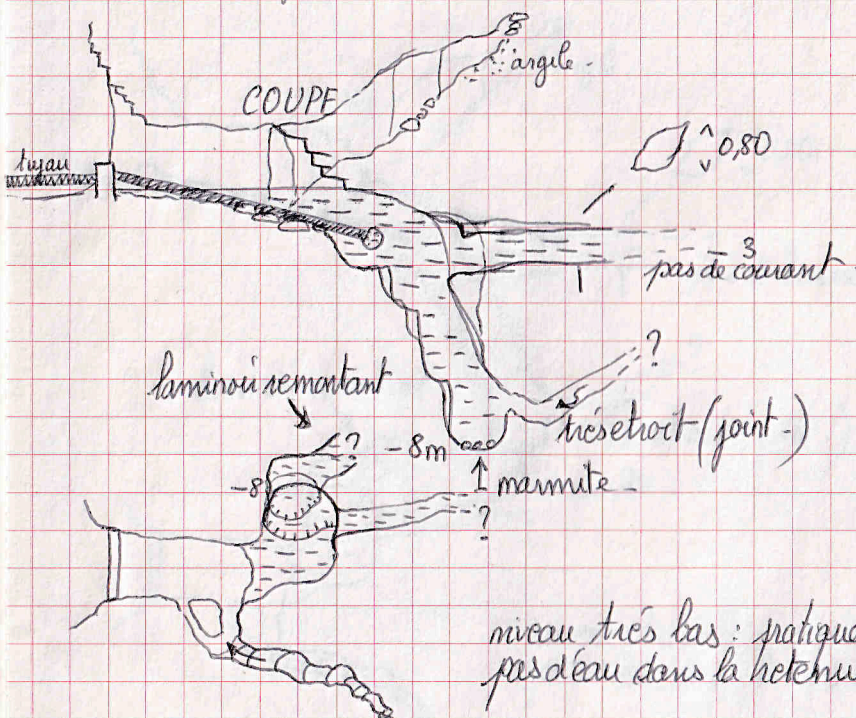 argile -
COUPE
tuyau
0,80
3
pas de courant -
?
laminoir remontant
?
-8m
très etroit (joint -)
-8
marmite -
?
niveau très bas : pratique
pas d'eau dans la retenu